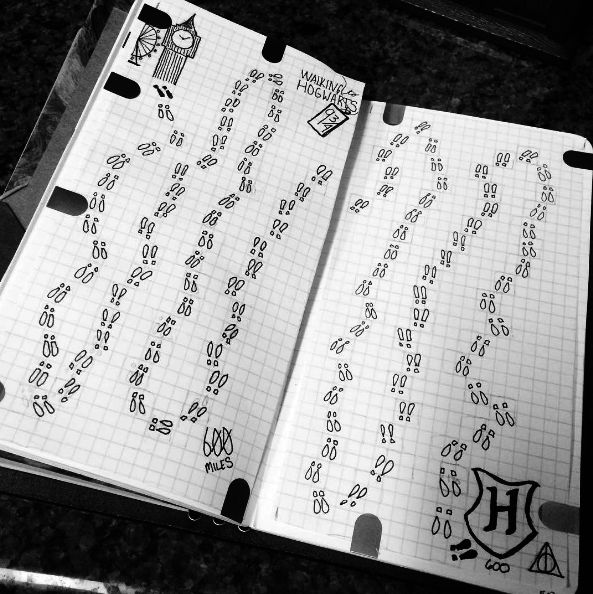 WALKING to
HOGWARTS
600
MILES
H
600